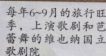 每年6~9月的旅行旺
季，上演歌剧和芭
蕾舞的维也纳国立
歌剧院